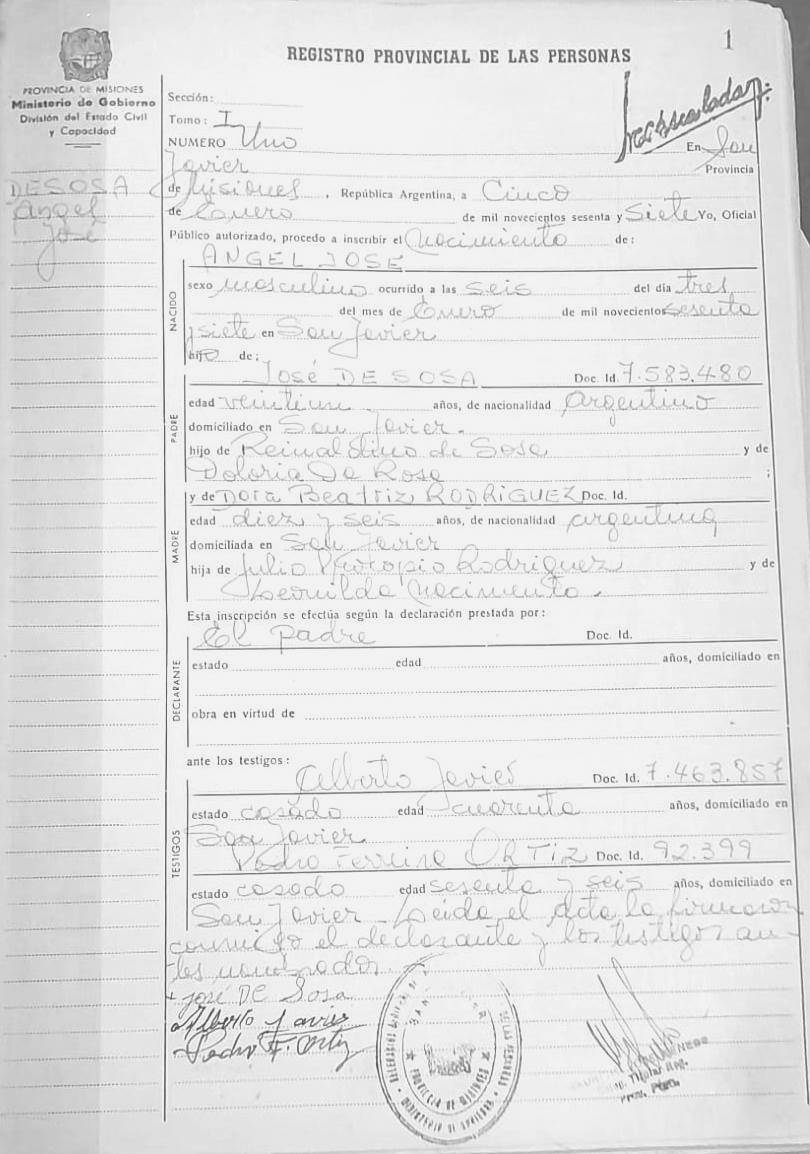 1
REGISTRO PROVINCIAL DE LAS PERSONAS
PROVINCIA DE MISIONES
Ministerio de Gobierno
División del Estado Civil
y Capacidad
DE SOSA
Angel
José
Sección:
Tomo: I
NUMERO Uno
En San
Javier Provincia
de Misiones, República Argentina, a Cinco
de Enero de mil novecientos sesenta y Siete Yo, Oficial
Público autorizado, procedo a inscribir el Nacimiento de:
NACIDO
ANGEL JOSE
sexo masculino ocurrido a las seis del día tres
del mes de Enero de mil novecientos sesenta
y siete en San Javier
hijo de:
PADRE
José DE SOSA Doc. Id. 7.583.480
edad veintiun años, de nacionalidad Argentino
domiciliado en San Javier.
hijo de Reinaldino de Sosa y de
Doloria Da Rosa ;
MADRE
y de Dora Beatriz RODRIGUEZ Doc. Id.
edad diez y seis años, de nacionalidad argentina
domiciliada en San Javier
hija de Julio Rodriguez y de
Leonilda Nacimento.
Esta inscripción se efectúa según la declaración prestada por:
DECLARANTE
El padre Doc. Id.
estado edad años, domiciliado en
obra en virtud de
ante los testigos:
TESTIGOS
Alberto Javier Doc. Id. 7.463.857
estado casado edad cuarenta años, domiciliado en
San Javier
Pedro Ferreira ORTIZ Doc. Id. 92.399
estado casado edad sesenta y seis años, domiciliado en
San Javier - Leida el acta la firmaron
conmigo el declarante y los testigos an-
tes nombrados.
+ José DE Sosa
Alberto Javier
Pedro F. Ortiz
PROVINCIA DE MISIONES